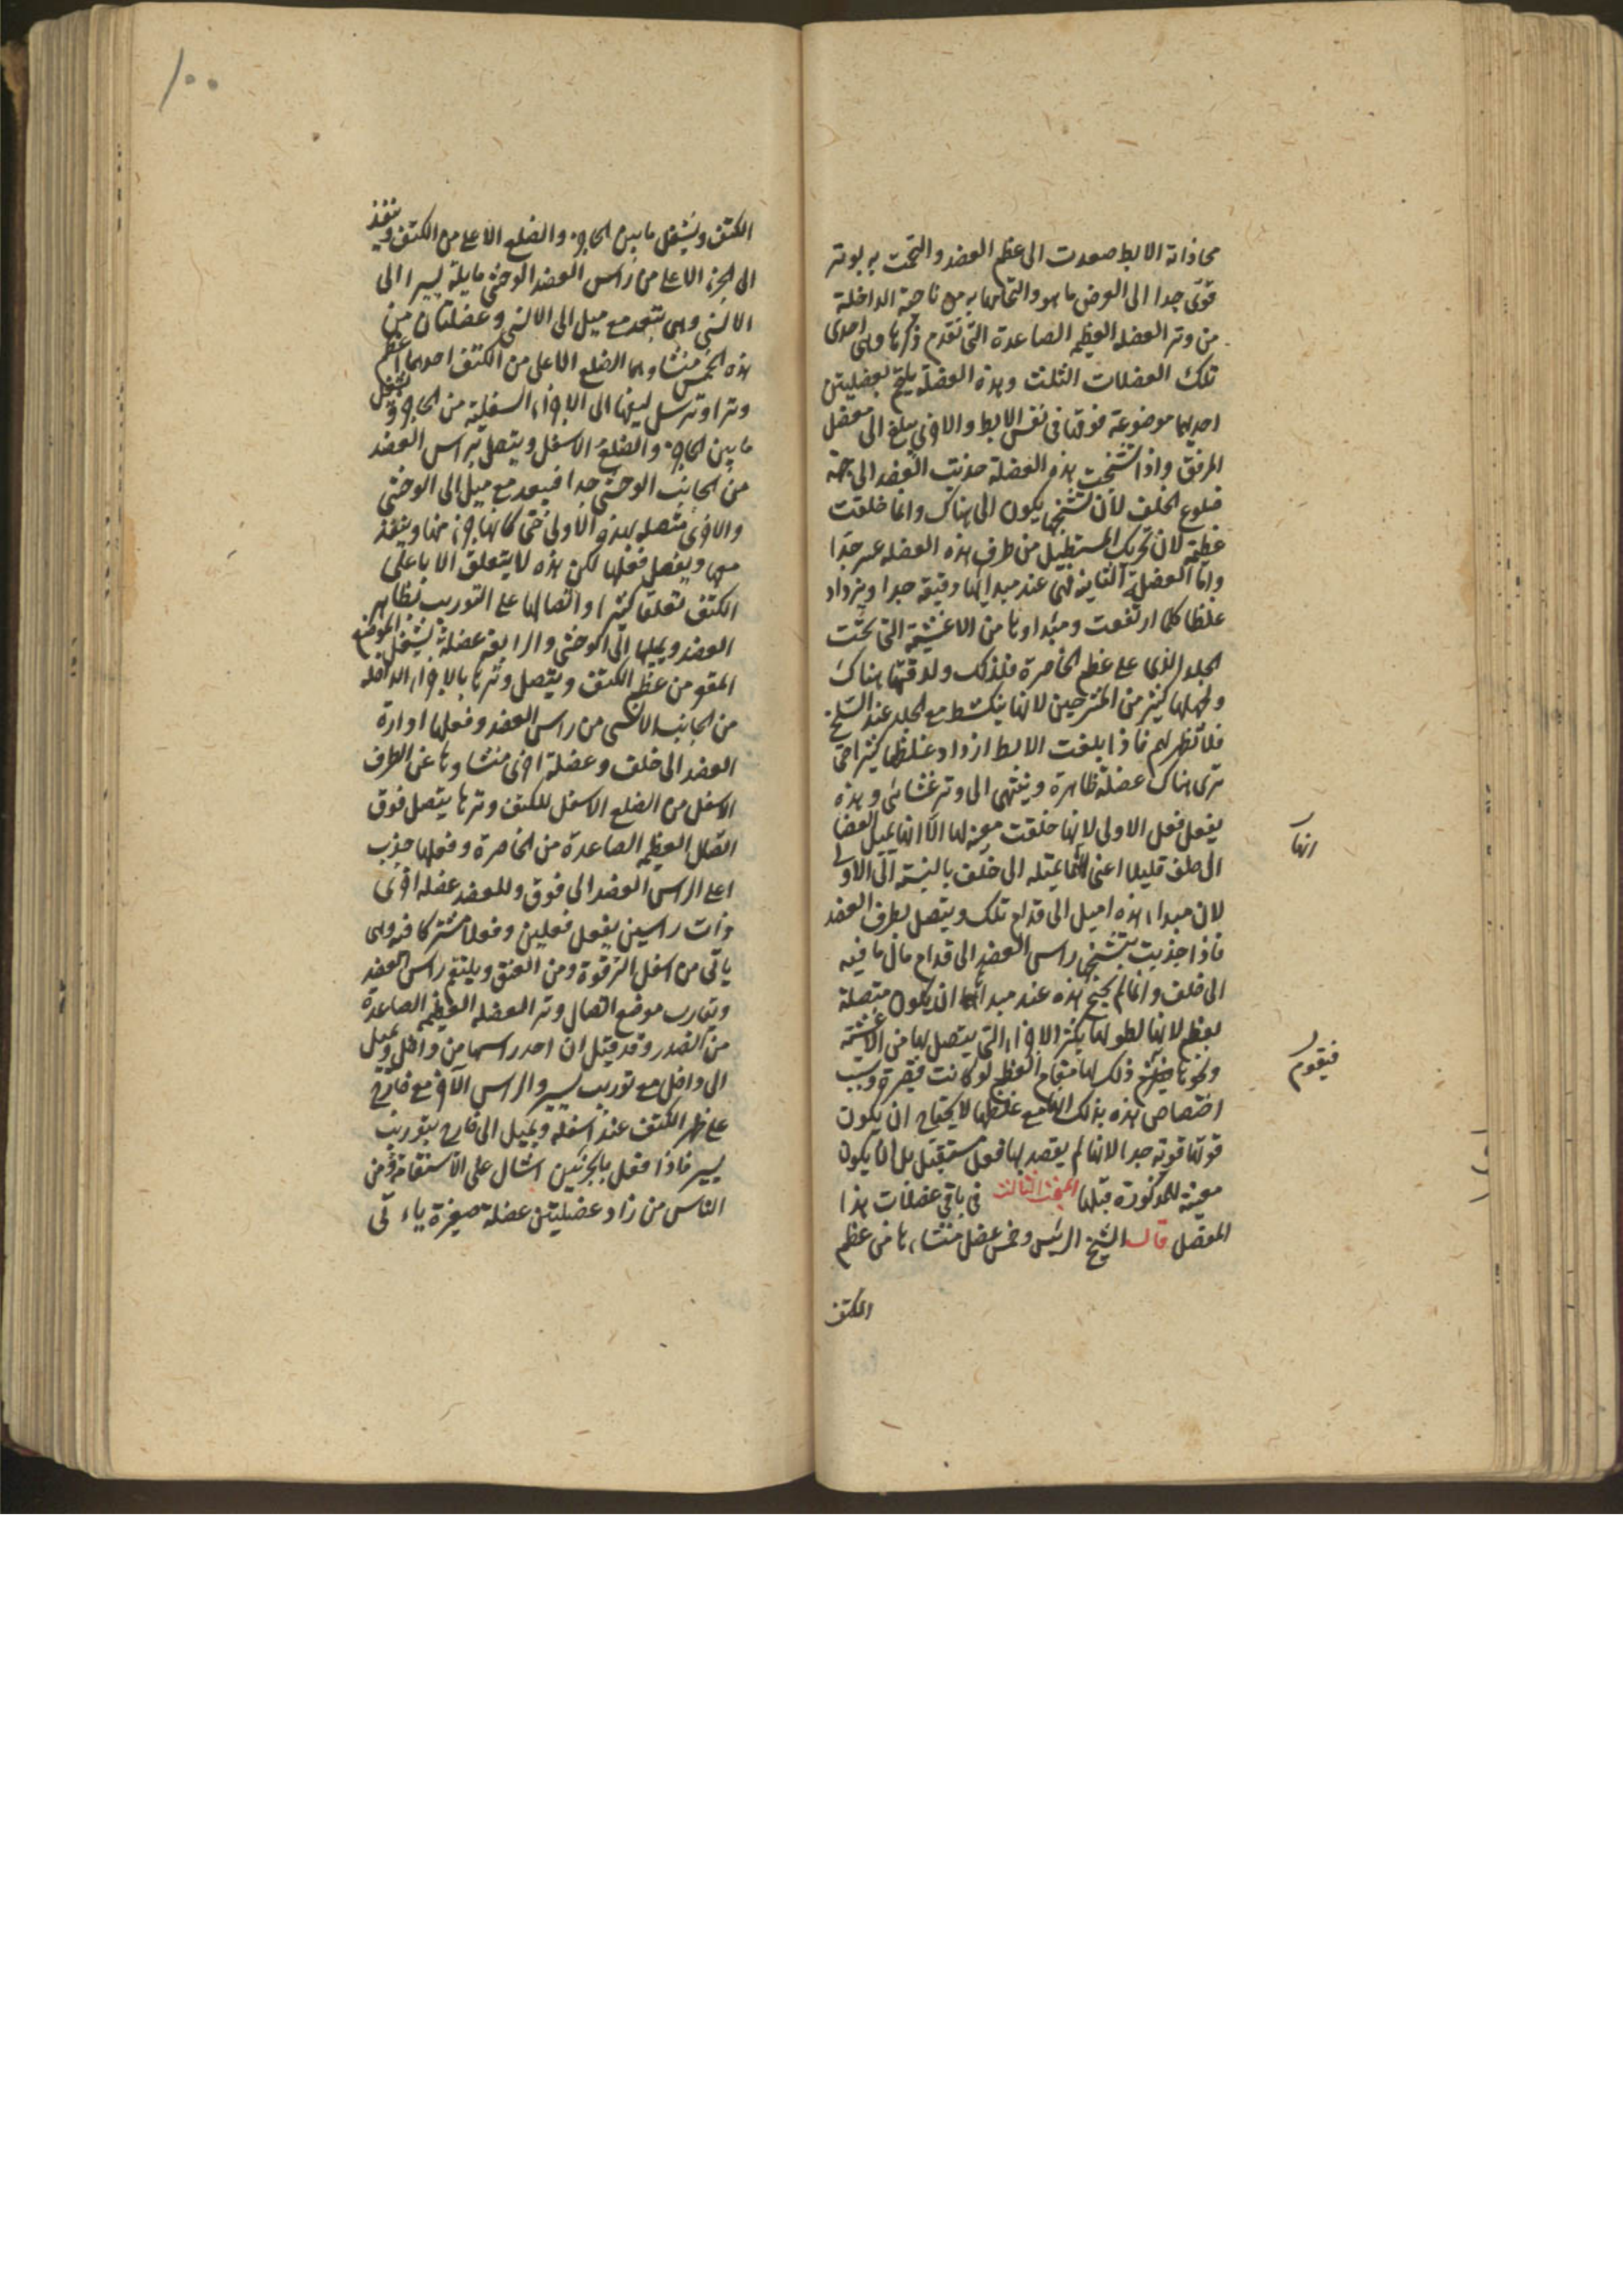 محاذاته الابط صعدت الى عظم العضد والتحمت به بوتر
قوى جدا الى العرض ما هو والتحامها به من ناحية الداخلة
من وتر العضلة العظيمة الصاعدة التى تقدم ذكرها وهى احدى
تلك العضلات الثلث وهذه العضلة يلتحم بعضليتين
احديهما موضوعة فوقها فى نفس الابط والاخرى يبلغ الى مفصل
المرفق واذا تشنجت هذه العضلة جذبت العضد الى جهة
ضلوع الخلف لان تشنجها يكون الى هناك وانما خلقت
عظيمة لان تحريك المستطيل من طرف هذه العضلة عسر جدا
واما العضلة الثانية فهى عند مبدائها دقيقة جدا ويزداد
غلظا كلما ارتفعت ومبداوها من الاغشية التى تحت
الجلد الذى على عظم الخاصرة فلذلك ولدقتها هناك
وجهلها كثير من المشرحين لانها ينكشط مع الجلد عند السلخ
فلا تظهر لهم فاذا بلغت الابط ازداد غلظها كثيرا حتى
ترى هناك عضلة ظاهرة وينتهى الى وتر غشائى وهذه
يفعل فعل الاولى لانها خلقت معينة لها الا انها تميل العضد
الى خلف قليلا اعنى انها تميله الى خلف بالنسبة الى الاولى
لان مبداء هذه اميل الى قدام تلك ويتصل بطرف العضد
فاذا جذبت بتشنجها راس العضد الى قدام مال ما فيه
الى خلف وانما لم يحتج هذه عند مبدائها ان يكون متصلة
بعظم لانها لطولها يكثر الاجزاء التى يتصل بها من الاغشية
ونحوها ذلك لها مقام العظم لو كانت قصيرة وسبب
اختصاص هذه بذلك انها مع غلظها لا يحتاج ان يكون
قوتها قوية جدا لانها لم يقصد بها فعل مستقل بل ان يكون
معينة للمذكورة قبلها المبحث الثالث فى باقى عضلات هذا
المفصل قال الشيخ الرئيس وخمس عضل منشاءها من عظم
الكتف
انها
فيقوم
١٠٠
الكتف ويشغل ما بين الحاجز والضلع الاعلى من الكتف وينفذ
الى الجزء الاعلى من راس العضد الوحشى مايلة يسيرا الى
الانسى وهى تبعد مع ميل الى الانسى وعضلتان من
هذه الخمس منشاوهما الضلع الاعلى من الكتف احدهما اعظم
وترا وترسل ليفها الى الاجزاء السفلية من الحاجز ويشغل
ما بين الحاجز والضلع الاسفل ويتصل براس العضد
من الجانب الوحشى جدا فيبعد مع ميل الى الوحشى
والاخرى متصله بهذه الاولى حتى كانها جزء منها وينفذ
معها ويفعل فعلها لكن هذه لا يتعلق الا باعلى
الكتف تعلقا كثيرا واتصالها على التوريب بظاهر
العضد ويميلها الى الوحشى والرابعة عضلة يشغل الموضع
المقعر من عظم الكتف ويتصل وترها بالاجزاء الداخله
من الجانب الانسى من راس العضد وفعلها ادارة
العضد الى خلف وعضلة اخرى منشاوها عن الطرف
الاسفل من الضلع الاسفل للكتف وترها يتصل فوق
اتصال العظيمة الصاعدة من الخاصرة وفعلها جذب
اعلى الراس العضد الى فوق وللعضد عضلة اخرى
ذات راسين يفعل فعلين وفعلا مشتركا فيه وهى
ياتى من اسفل الترقوة ومن العنق ويلتقم راس العضد
وتقارب موضع اتصال وتر العضلة العظيمة الصاعدة
من الصدر وقد قيل ان احد راسيها من داخل ويميل
الى داخل مع توريب يسير والراس الاخر مع خارج
على ظهر الكتف عند اسفله ويميل الى خارج بتوريب
يسير فاذا فعل بالجزئين اشال على الاستقامة ومن
الناس من زاد عضليتين عضلة صغيرة ياءتى